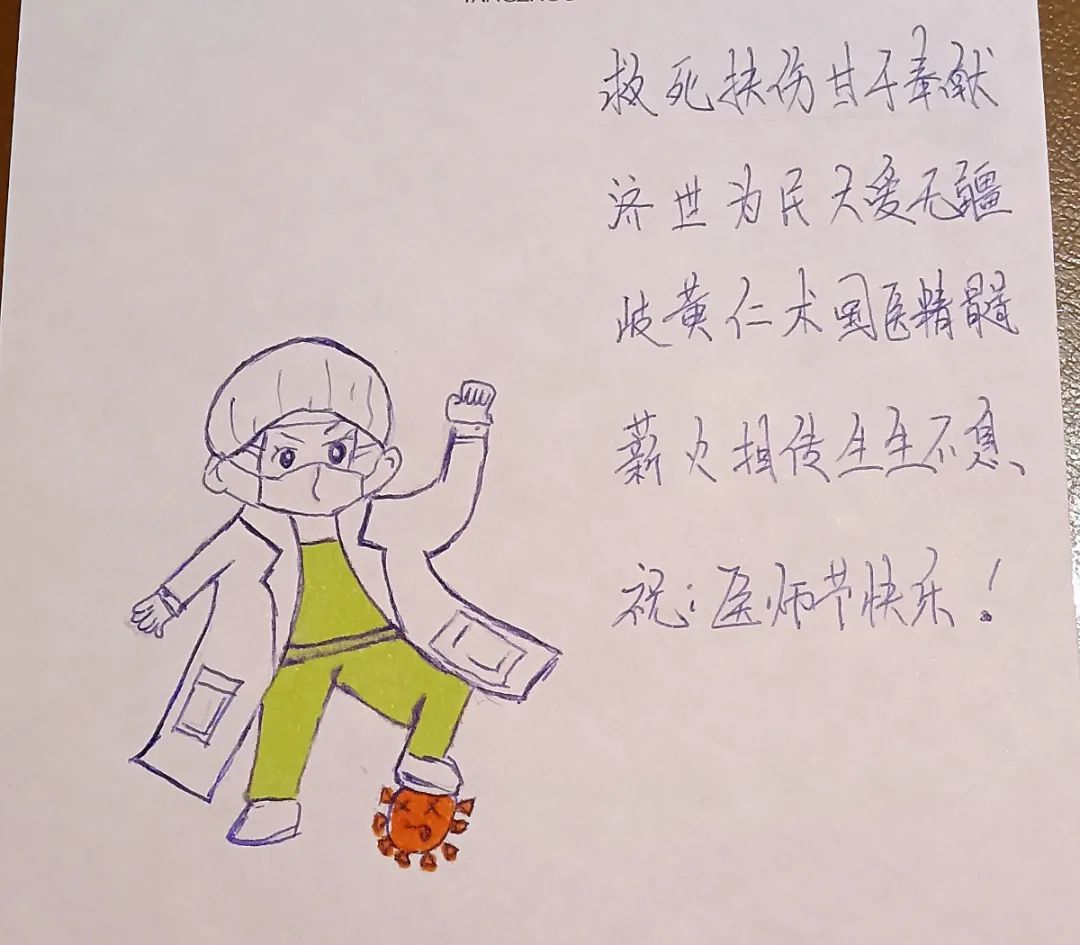 救死扶伤甘于奉献
济世为民大爱无疆
岐黄仁术国医精髓
薪火相传生生不息、
祝：医师节快乐！